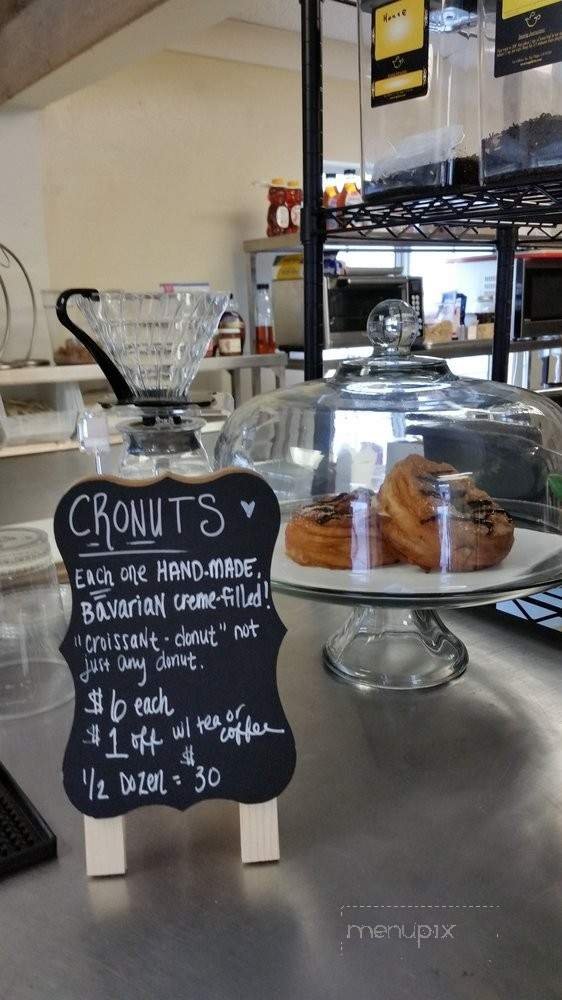 House
CRONUTS
Each one HAND-MADE,
Bavarian creme-filled!
"croissant-donut" not
just any donut.
$6 each
$1 off w/ tea or coffee
1/2 Dozen = $30
menupix